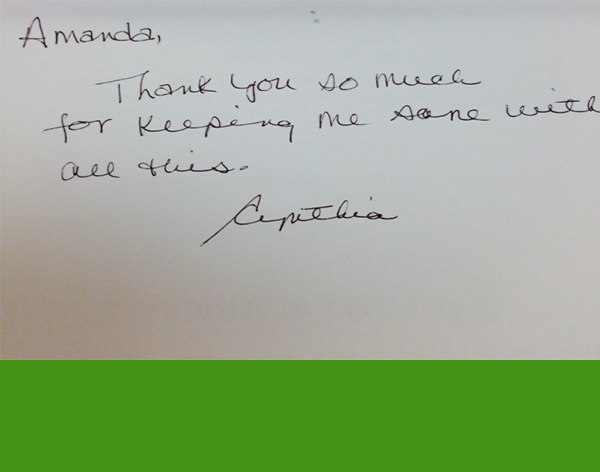 Amanda,
Thank you so much
for keeping me sane with
all this.
Cynthia